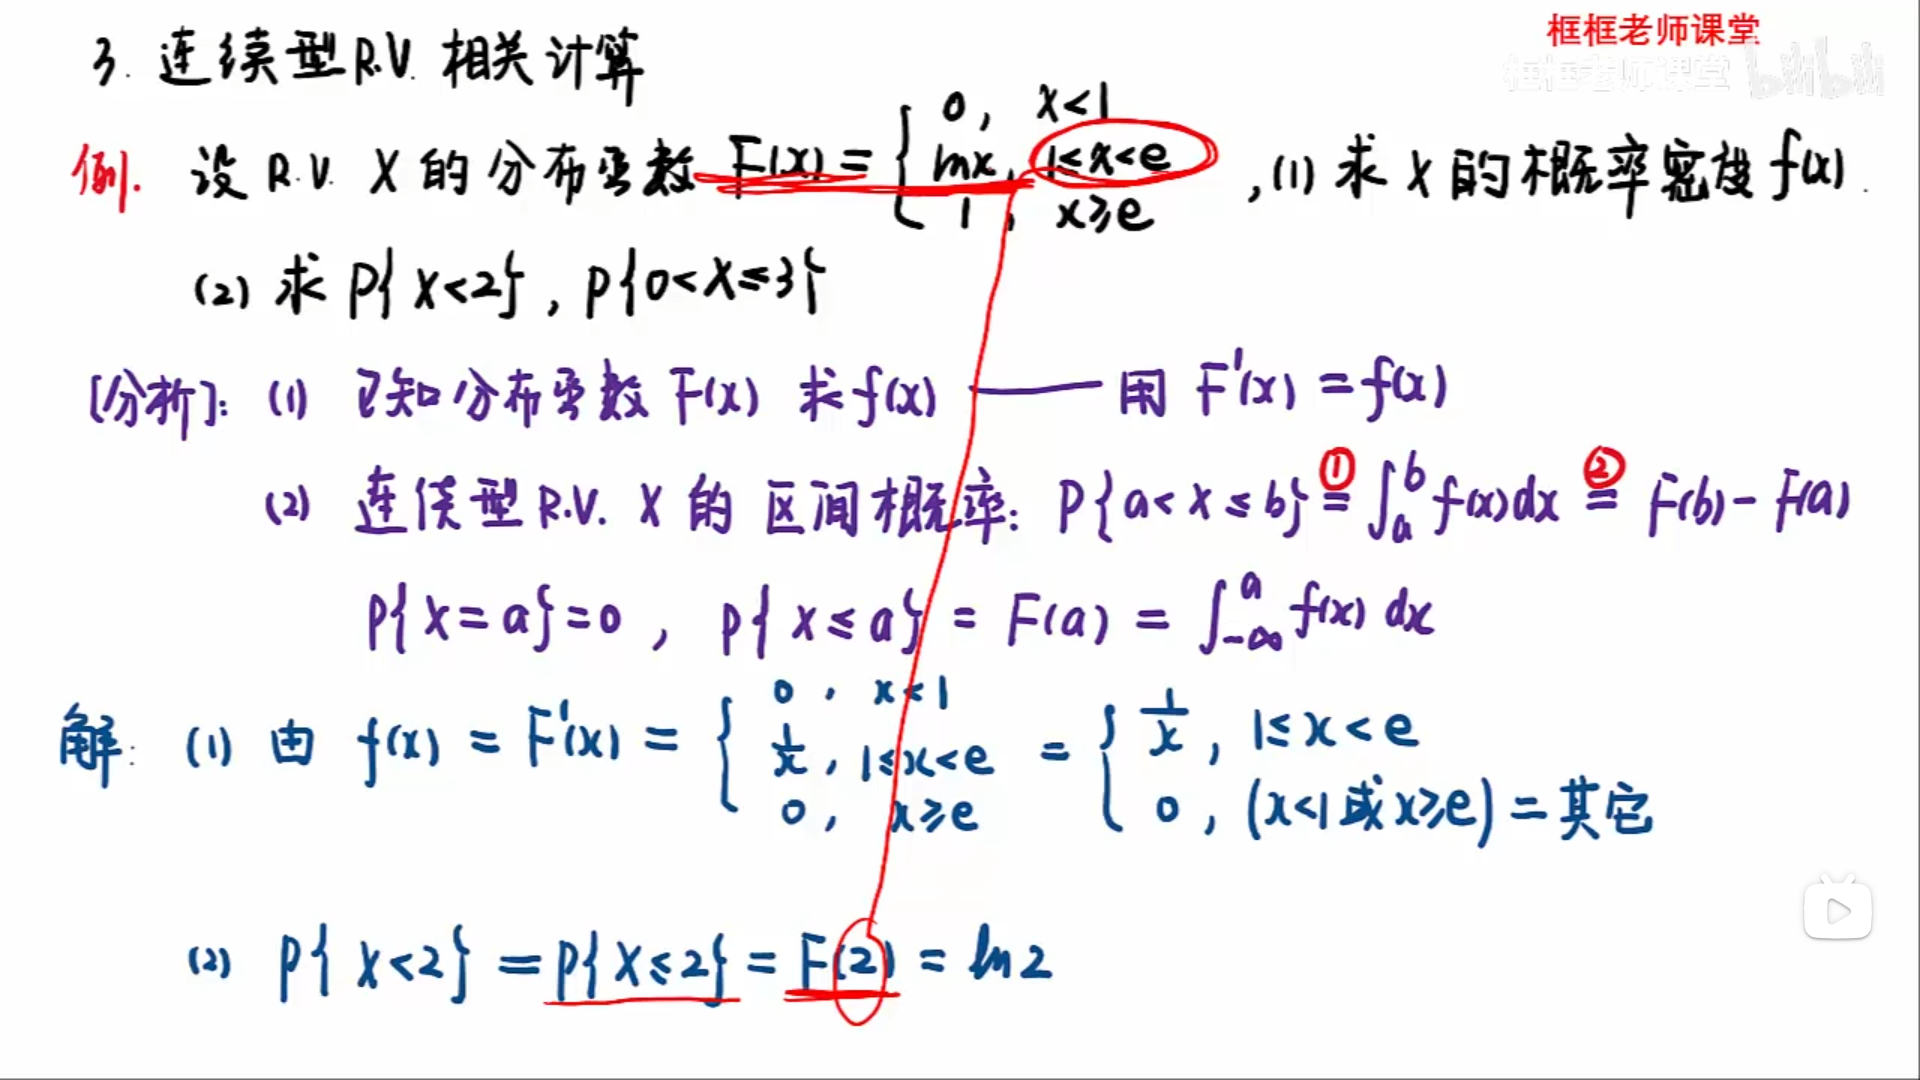 框框老师课堂
框框老师课堂 bilibili
3. 连续型R.V. 相关计算
例. 设 R.V. X 的分布函数 F(x) = { 0, x<1
lnx, 1≤x<e
1, x≥e
,(1) 求 X 的概率密度 f(x).
(2) 求 P{X<2}, P{0<X≤3}
[分析]: (1) 已知分布函数 F(x) 求 f(x) —— 用 F'(x) = f(x)
(2) 连续型 R.V. X 的 区间概率: P{a<X≤b} ①= ∫_a^b f(x)dx ②= F(b)-F(a)
P{X=a}=0, P{X≤a} = F(a) = ∫_{-∞}^a f(x) dx
解: (1) 由 f(x) = F'(x) = { 0, x<1
1/x, 1≤x<e
0, x≥e
= { 1/x, 1≤x<e
0, (x<1或x≥e) = 其它
(2) P{X<2} = P{X≤2} = F(2) = ln2